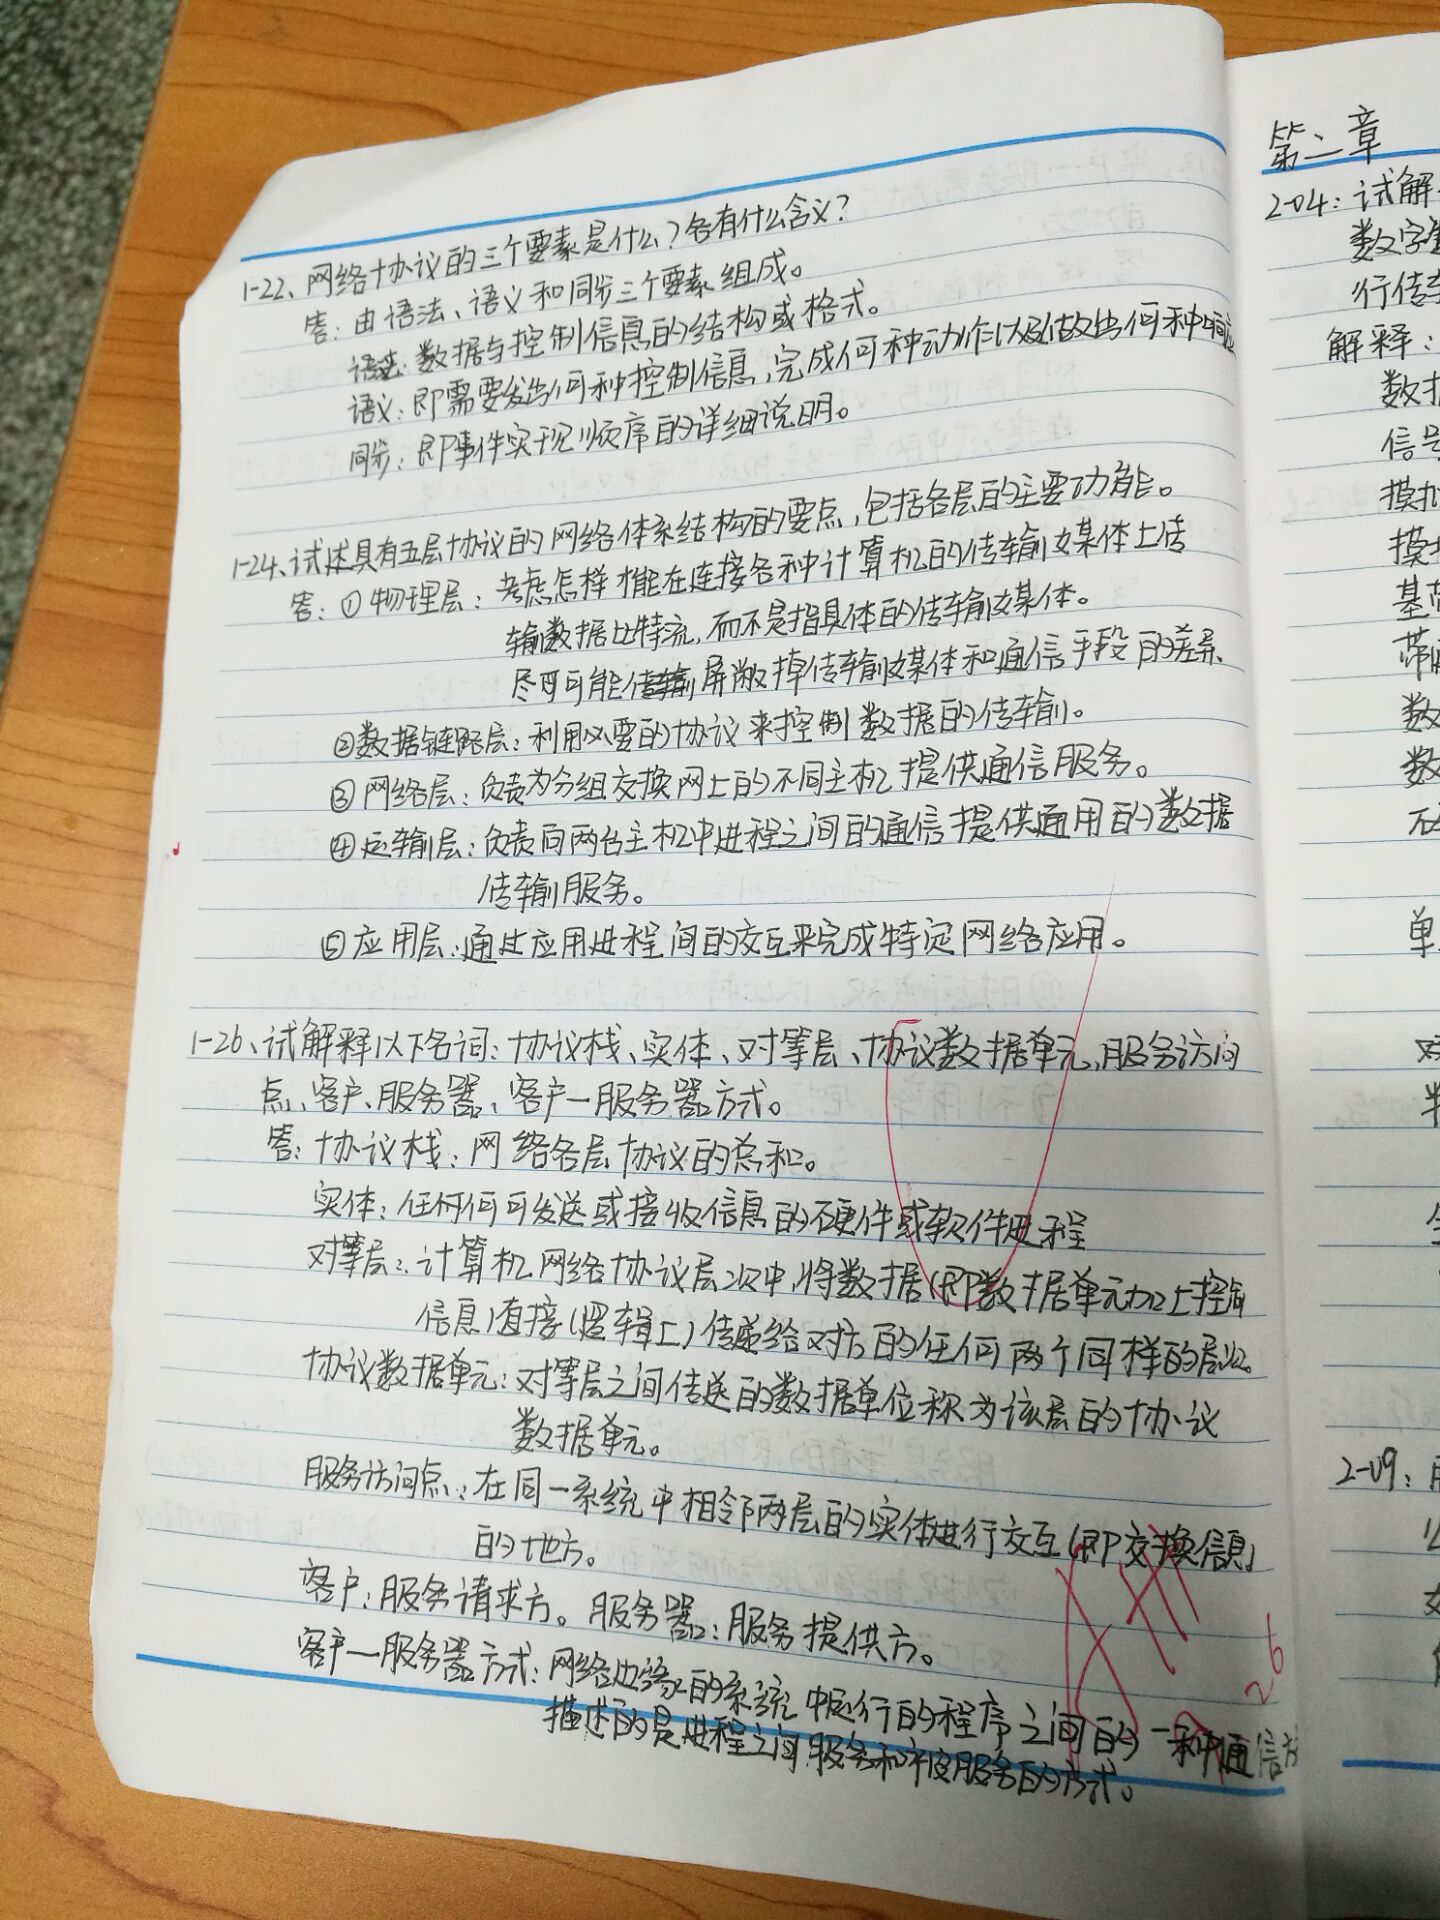 1-22、网络协议的三个要素是什么？各有什么含义？
答：由语法、语义和同步三个要素组成。
语法：数据与控制信息的结构或格式。
语义：即需要发出何种控制信息，完成何种动作以及做出何种响应
同步：即事件实现顺序的详细说明。
1-24、试述具有五层协议的网络体系结构的要点，包括各层的主要功能。
答：①物理层：考虑怎样才能在连接各种计算机的传输媒体上传
输数据比特流，而不是指具体的传输媒体。
尽可可能屏蔽掉传输媒体和通信手段的差异、
②数据链路层：利用必要的协议来控制数据的传输。
③网络层：负责为分组交换网上的不同主机提供通信服务。
④运输层：负责向两台主机中进程之间的通信提供通用的数据
传输服务。
⑤应用层：通过应用进程间的交互来完成特定网络应用。
1-26、试解释以下名词：协议栈、实体、对等层、协议数据单元、服务访问
点、客户、服务器、客户—服务器方式。
答：协议栈：网络各层协议的总和。
实体：任何何可发送或接收信息的硬件或软件进程
对等层：计算机网络协议层次中，将数据（即数据单元加上控制
信息）直接（逻辑上）传递给对方的任何两个同样的层次。
协议数据单元：对等层之间传送的数据单位称为该层的协议
数据单元。
服务访问点：在同一系统中相邻两层的实体进行交互（即交换信息）
的地方。
客户：服务请求方。服务器：服务提供方。
客户—服务器方式：网络边缘的系统中运行的程序之间的一种通信方
描述的是进程之间服务和被服务的方式。
26
第二章
2-04：试解
数字
行传
解释：
数据
信号
模拟
模
基
带
数
数
单
对
2-09：